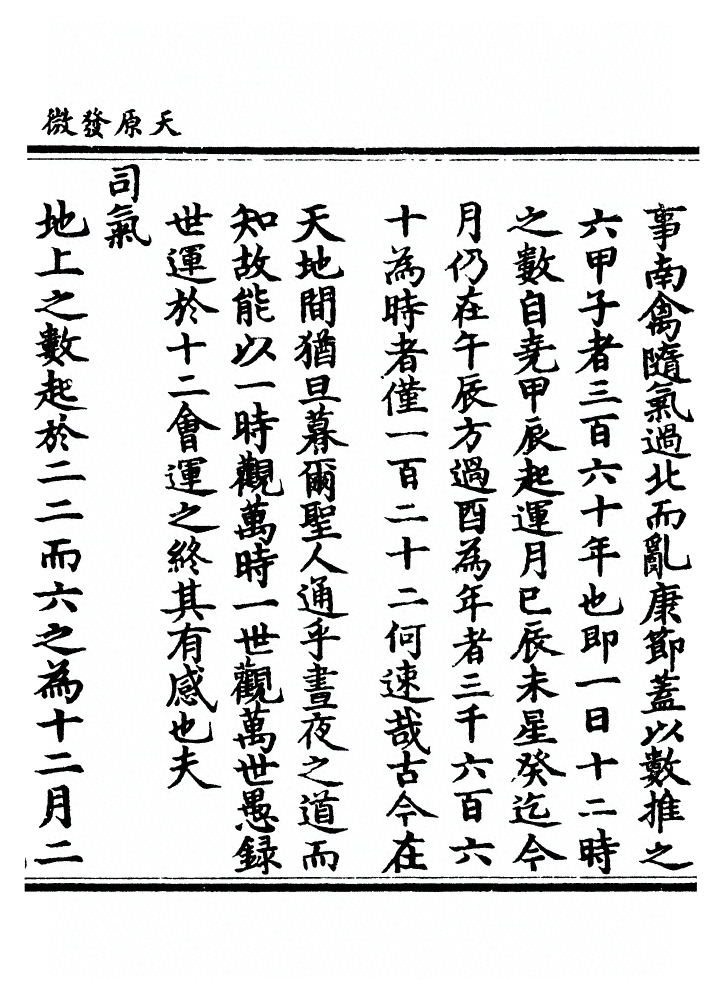 天原發微
事南禽隨氣過北而亂康節蓋以數推之
六甲子者三百六十年也即一日十二時
之數自堯甲辰起運月巳辰未星癸迄今
月仍在午辰方過酉為年者三千六百六
十為時者僅一百二十二何速哉古今在
天地間猶旦暮爾聖人通乎晝夜之道而
知故能以一時觀萬時一世觀萬世愚錄
世運於十二會運之終其有感也夫
司氣
地上之數起於二二而六之為十二月二